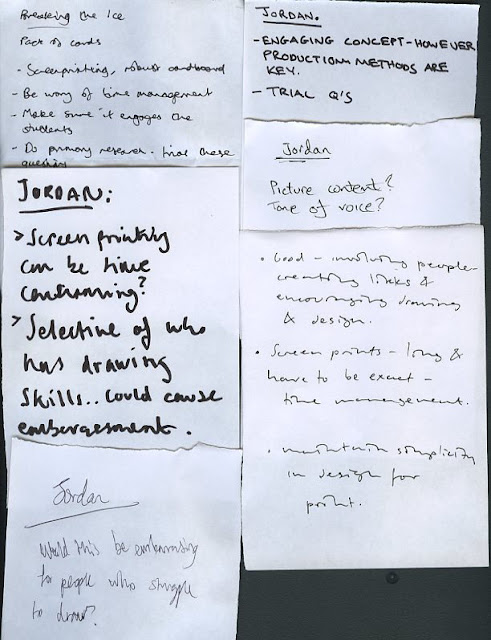 Breaking the Ice
Pack of cards
- Screenprinting, robust cardboard
- Be wary of time management
- Make sure it engages the
students
- Do primary research - trial these
questions
JORDAN:
> Screen printing
can be time
consuming?
> Selective of who
has drawing
skills.. could cause
embaresment.
Jordan
Would this be embarrasing
for people who struggle
to draw?
JORDAN.
- ENGAGING CONCEPT - HOWEVER
PRODUCTION METHODS ARE
KEY.
- TRIAL Q'S
Jordan
Picture content?
Tone of voice?
• Good - involving people
creating links &
encouraging drawing
& design.
• Screen prints - long &
have to be exact -
time management.
• maintain simplicity
in design for
print.